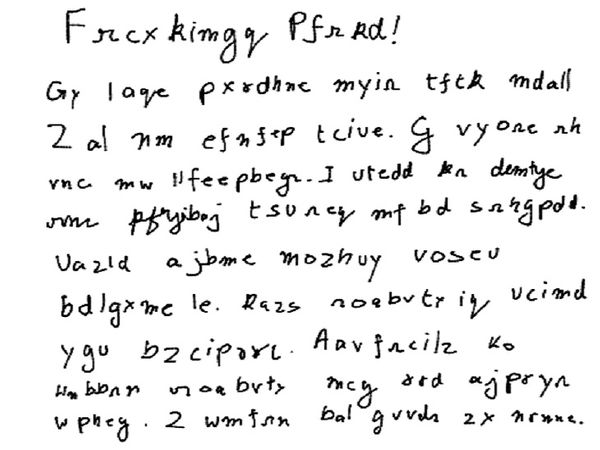 Frcxkimgq Pfrkd!
Gy laqe pxrdhne myin tftk mdall
Z al nm efnfep tcive. G vyone nh
vnc mw llfeepbegr. I utedd kn demtye
tsvney mf bd snrgpdd.
Uazld ajbme mozhuy voscu
bdlgxme le. Razs noabvtx iq ucimd
ygu bzciporl. Aavfrcilz ko
noabvtx mcg ord ajpryn
wpheg. Z wmfsnn bal gvvds zx nrnne.